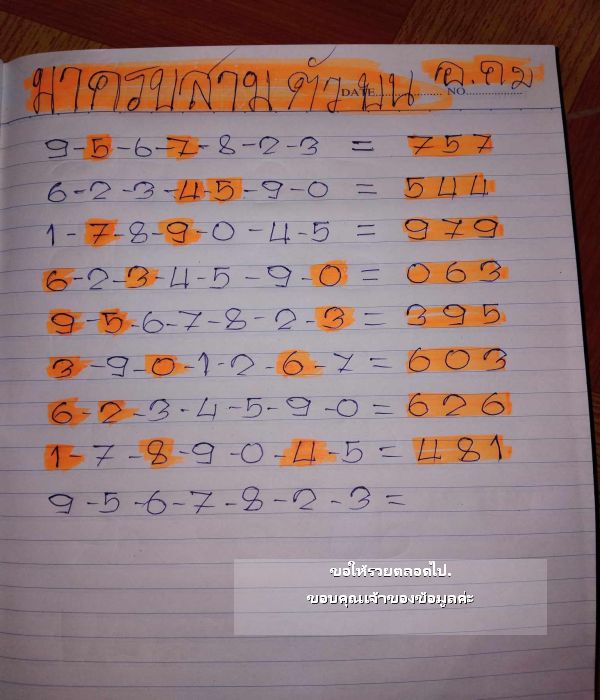 มาครบสามตัวบน อ.คม
DATE.................... NO................
9-5-6-7-8-2-3 = 757
6-2-3-4-5-9-0 = 544
1-7-8-9-0-4-5 = 979
6-2-3-4-5-9-0 = 063
9-5-6-7-8-2-3 = 395
3-9-0-1-2-6-7 = 603
6-2-3-4-5-9-0 = 626
1-7-8-9-0-4-5 = 481
9-5-6-7-8-2-3 =
ขอให้รวยตลอดไป.
ขอบคุณเจ้าของข้อมูลค่ะ